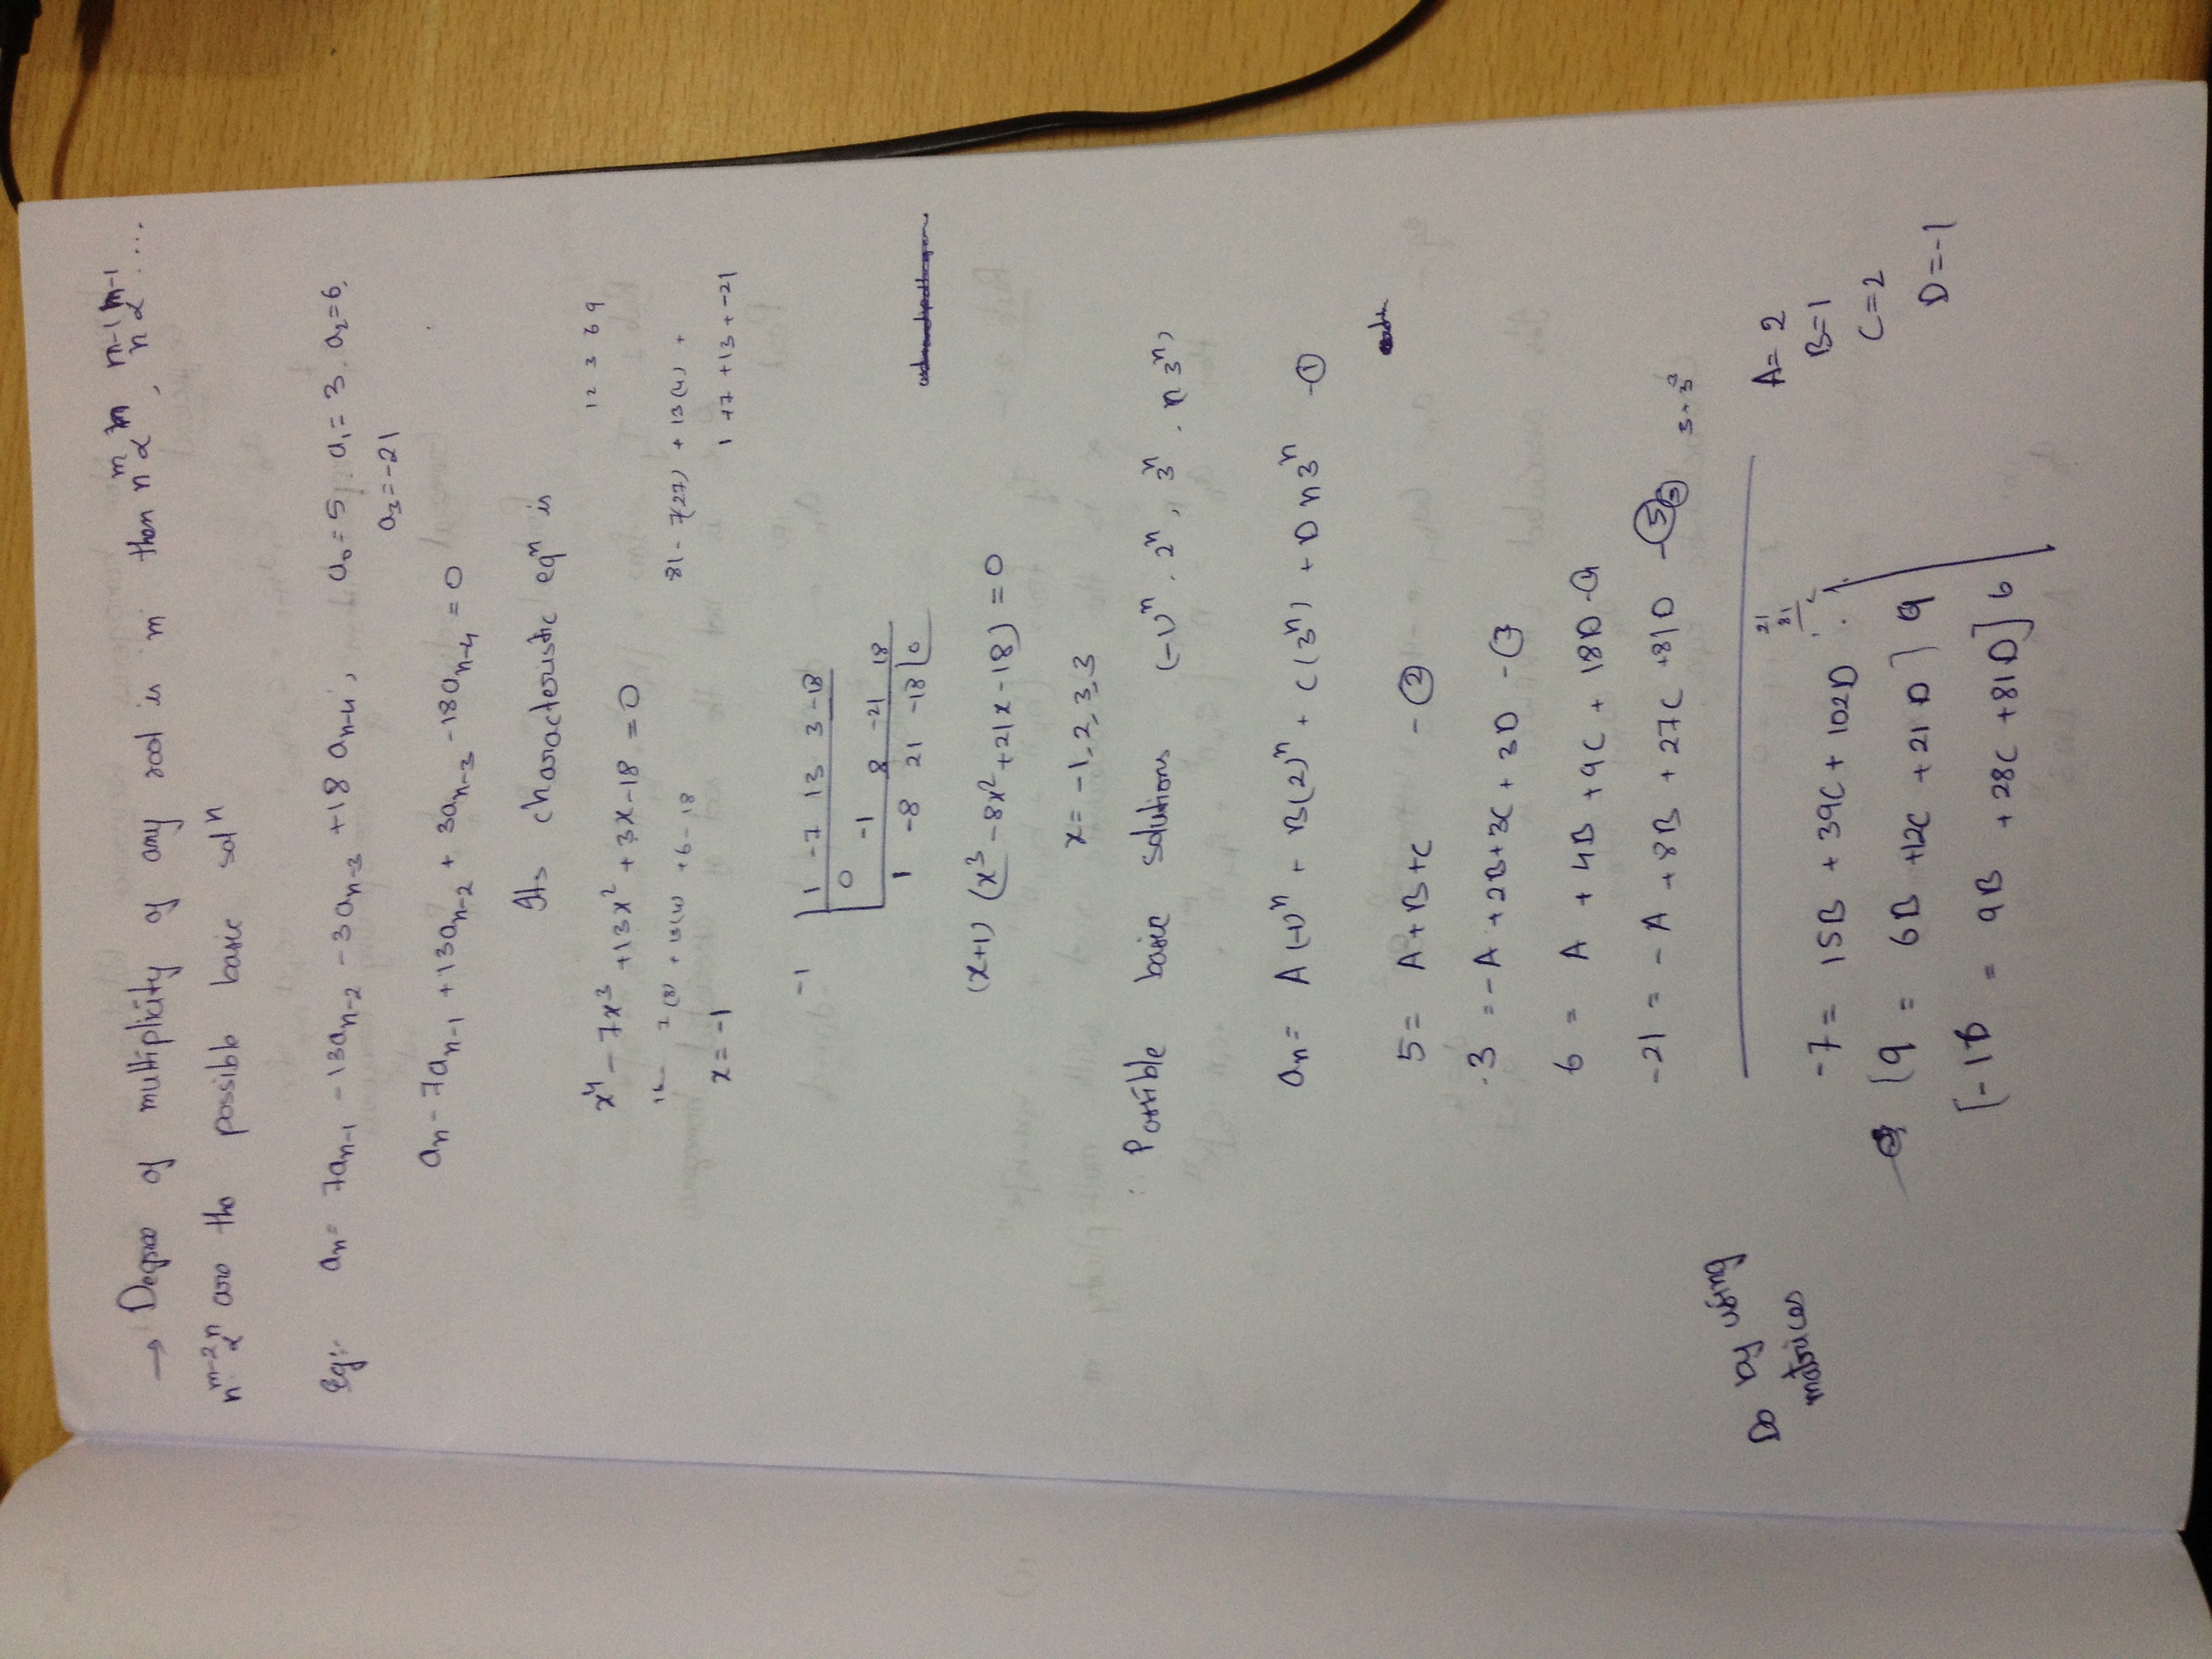 → Degree of multiplicity of any root is m then n^m α^n, n^{m-1} α^{n-1} ....
n^{m-2} α^n are the possible basic solⁿ
Eg:- aₙ = 7aₙ₋₁ - 13aₙ₋₂ - 3aₙ₋₃ + 18aₙ₋₄, a₀ = 5, a₁ = 3, a₂ = 6,
a₃ = -21
aₙ - 7aₙ₋₁ + 13aₙ₋₂ + 3aₙ₋₃ - 18aₙ₋₄ = 0
Its characteristic eqⁿ is
x⁴ - 7x³ + 13x² + 3x - 18 = 0
1 2 3 6 9
16 - 7(8) + 13(4) + 6 - 18
81 - 7(27) + 13(4) +
x = -1
1 + 7 + 13 + -21
-1 | 1 -7 13 3 -18
0 -1 8 -21 18
1 -8 21 -18 | 0
(x+1) (x³ - 8x² + 21x - 18) = 0
x = -1, 2, 3, 3
Possible basic solutions (-1)ⁿ, 2ⁿ, 3ⁿ, n3ⁿ,
aₙ = A(-1)ⁿ + B(2)ⁿ + C(3ⁿ) + D n 3ⁿ -①
5 = A + B + C -②
3 = -A + 2B + 3C + 3D -③
6 = A + 4B + 9C + 18D -④
-21 = -A + 8B + 27C + 81D -⑤
Do by using
matrices
-7 = 15B + 39C + 102D
21
81
[9 = 6B + 12C + 21D] 9
[-18 = 9B + 28C + 81D] 6
A = 2
B = 1
C = 2
D = -1